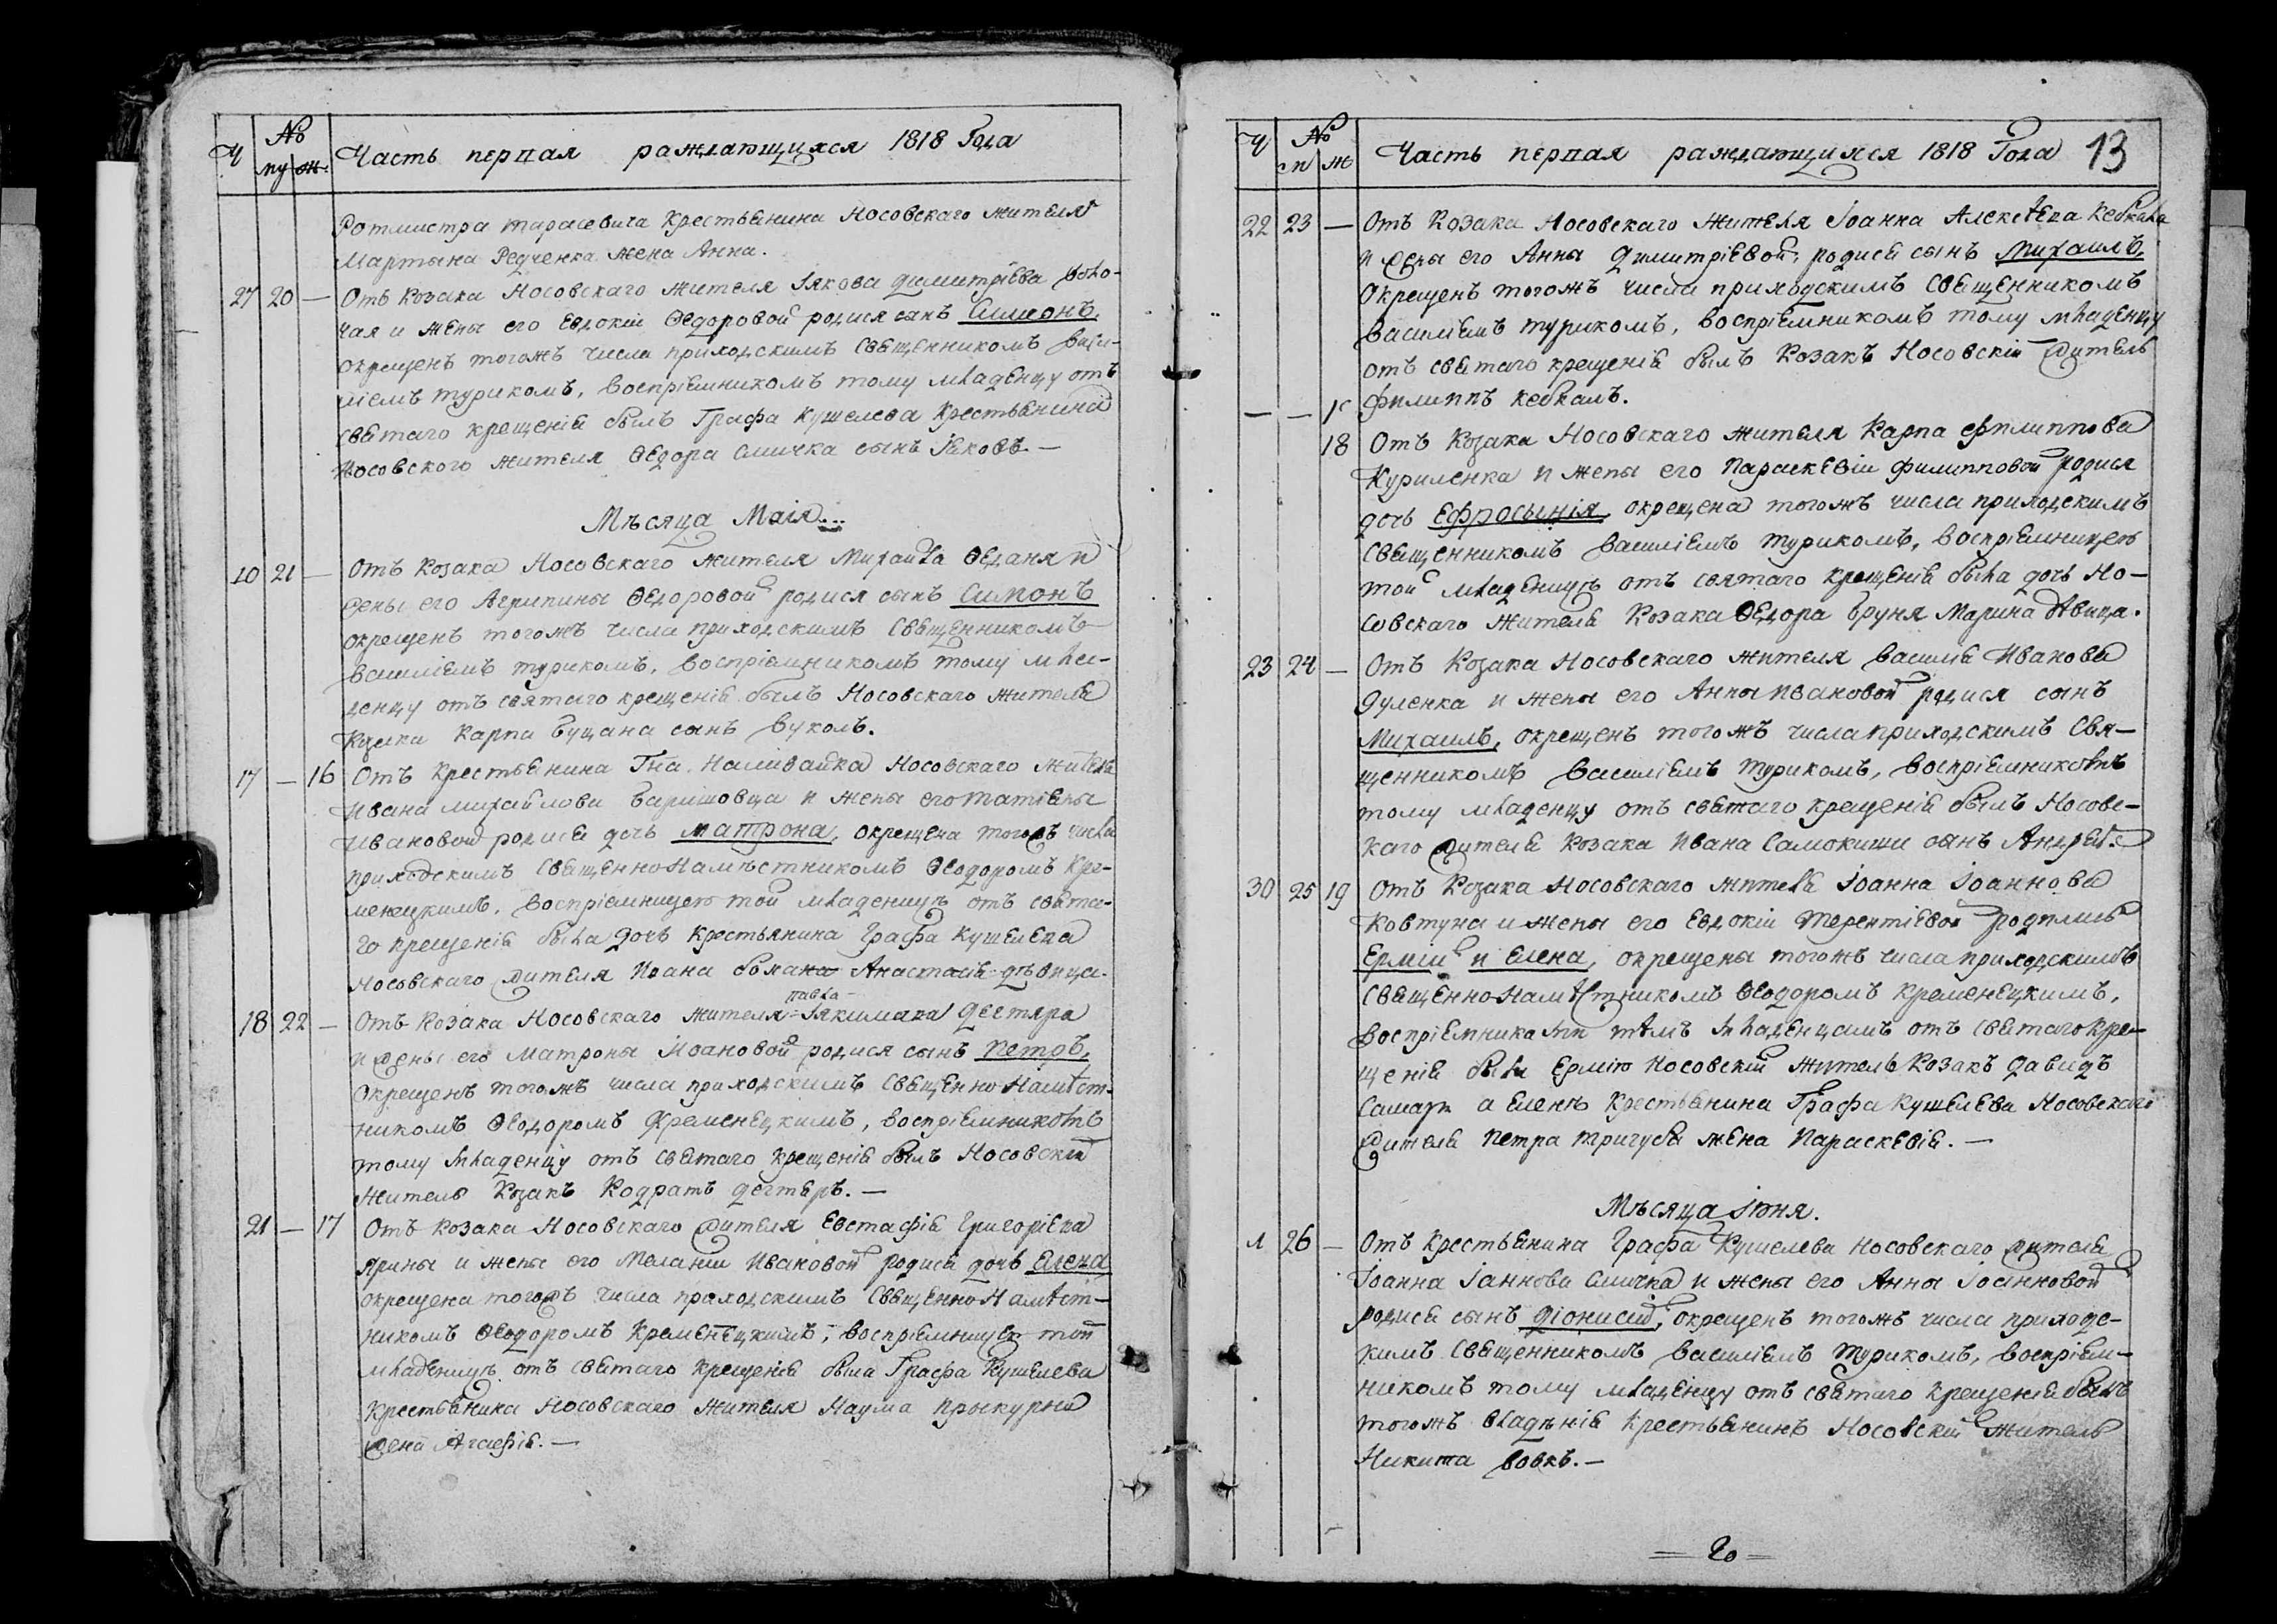 Ч № Часть первая раждающихся 1818 Года
му ж
Ротмистра тарасевича крестьянина Носовскаго жителя
Мартына Редченка жена Анна.
27 20 — Отъ козака Носовскаго жителя Іякова димитріева
чая и жены его Евдокіи Ѳедоровой родися сынъ Симеонъ,
окрещенъ тогожъ числа приходскимъ священникомъ Васи-
ліемъ турикомъ, воспріемникомъ тому младенцу отъ
святаго крещенія былъ Графа Кушелева крестьянина
Носовского жителя Ѳедора Смичка сынъ Іяковъ. —
Мѣсяца Маія...
10 21 — Отъ козака Носовскаго жителя Михаила Ѳеданя и
жены его Агрипины Ѳедоровой родися сынъ Симонъ
окрещенъ тогожъ числа приходскимъ священникомъ
василіемъ туриком��, воспріемникомъ тому мла-
денцу отъ святаго крещенія былъ Носовскаго жителя
Козака Карпа Буцана сынъ Вуколъ.
17 — 16 Отъ крестьянина Гна. Наливайка Носовскаго жителя
Ивана михайлова Баришовца и жены его татіяны
Ивановой родися дочь матрона, окрещена тогожъ числа
приходскимъ священно-Намѣстникомъ Ѳеодоромъ Кре-
менецкимъ, воспріемницею той младеницѣ отъ свята-
го крещенія была дочь крестьянина Графа Кушелева
Носовского жителя Иоана Анастасія дѣвица.
павла
18 22 — Отъ козака Носовскаго жителя Іякимаха Дегтяра
и жены его Матроны Иоановой родися сынъ Петръ,
Окрещенъ тогожъ числа приходскимъ священно-Намѣст-
никомъ Ѳеодоромъ Кременецкимъ, воспріемникомъ
тому младенцу отъ святаго крещенія былъ Носовскій
житель Козакъ Кодратъ дегтяръ. —
21 — 17 Отъ козака Носовскаго жителя Евстафія Григоріева
Ярины и жены его Меланіи Ивановой родися дочь Елена
окрещена тогожъ числа приходскимъ Священно-Намѣст-
никомъ Ѳеодоромъ Кременецкимъ, воспріемницею той
младеницѣ отъ святаго крещенія была Графа Кушелева
крестьянина Носовскаго жителя Наума прокурни
жена Агафія. —
Ч № Часть первая раждающихся 1818 Года 13
м ж
22 23 — Отъ Козака Носовскаго жителя Іоанна Алексѣева Кебкала
и жены его Анны Димитріевой, родися сынъ Михаилъ,
окрещенъ тогожъ числа приходскимъ священникомъ
василіемъ туриком��, воспріемникомъ тому младенцу
отъ святаго крещенія былъ Козакъ Носовскій житель
Филиппъ Кебкалъ.
— — 18 Отъ Козака Носовскаго жителя Карпа филиппова
Куриленка и жены его Параскевіи филипповой родися
дочь Ефросынія, окрещена тогожъ числа приходскимъ
священникомъ василіемъ туриком��, воспріемницею
той младеницѣ отъ святаго крещенія была дочь Но-
совскаго жителя Козака Ѳедора Бруня Марина дѣвица.
23 24 — Отъ Козака Носовскаго жителя василія Иванова
Дуленка и жены его Анны Ивановой родися сынъ
Михаилъ, окрещенъ тогожъ числа приходскимъ свя-
щенникомъ василіемъ туриком��, воспріемникомъ
тому младенцу отъ святаго крещенія былъ Носовс-
каго жителя козака Ивана Самокиши сынъ Андрей.
30 25 19 Отъ Козака Носовскаго жителя Іоанна Іоаннова
Ковтуна и жены его Евдокіи Терентіевой родились
Ермій и Елена, окрещены тогожъ числа приходскимъ
священно-Намѣстникомъ Ѳеодоромъ Кременецкимъ,
воспріемниками тѣмъ младенцамъ отъ святаго кре-
щенія были Ермію Носовскій житель козакъ давидъ
Самара а Еленѣ крестьянина Графа Кушелева Носовскаго
жителя Петра тригуба жена Параскевія. —
Мѣсяца Іюня.
1 26 — Отъ крестьянина Графа Кушелева Носовскаго жителя
Іоанна Іаннова Смичка и жены его Анны Іоанновой
родися сынъ діонисій, окрещенъ тогожъ числа приходс-
кимъ священникомъ василіемъ туриком��, воспріем-
никомъ тому младенцу отъ святаго крещенія былъ
тогожъ владѣнія крестьянинъ Носовскій житель
Никита Вовкъ. —